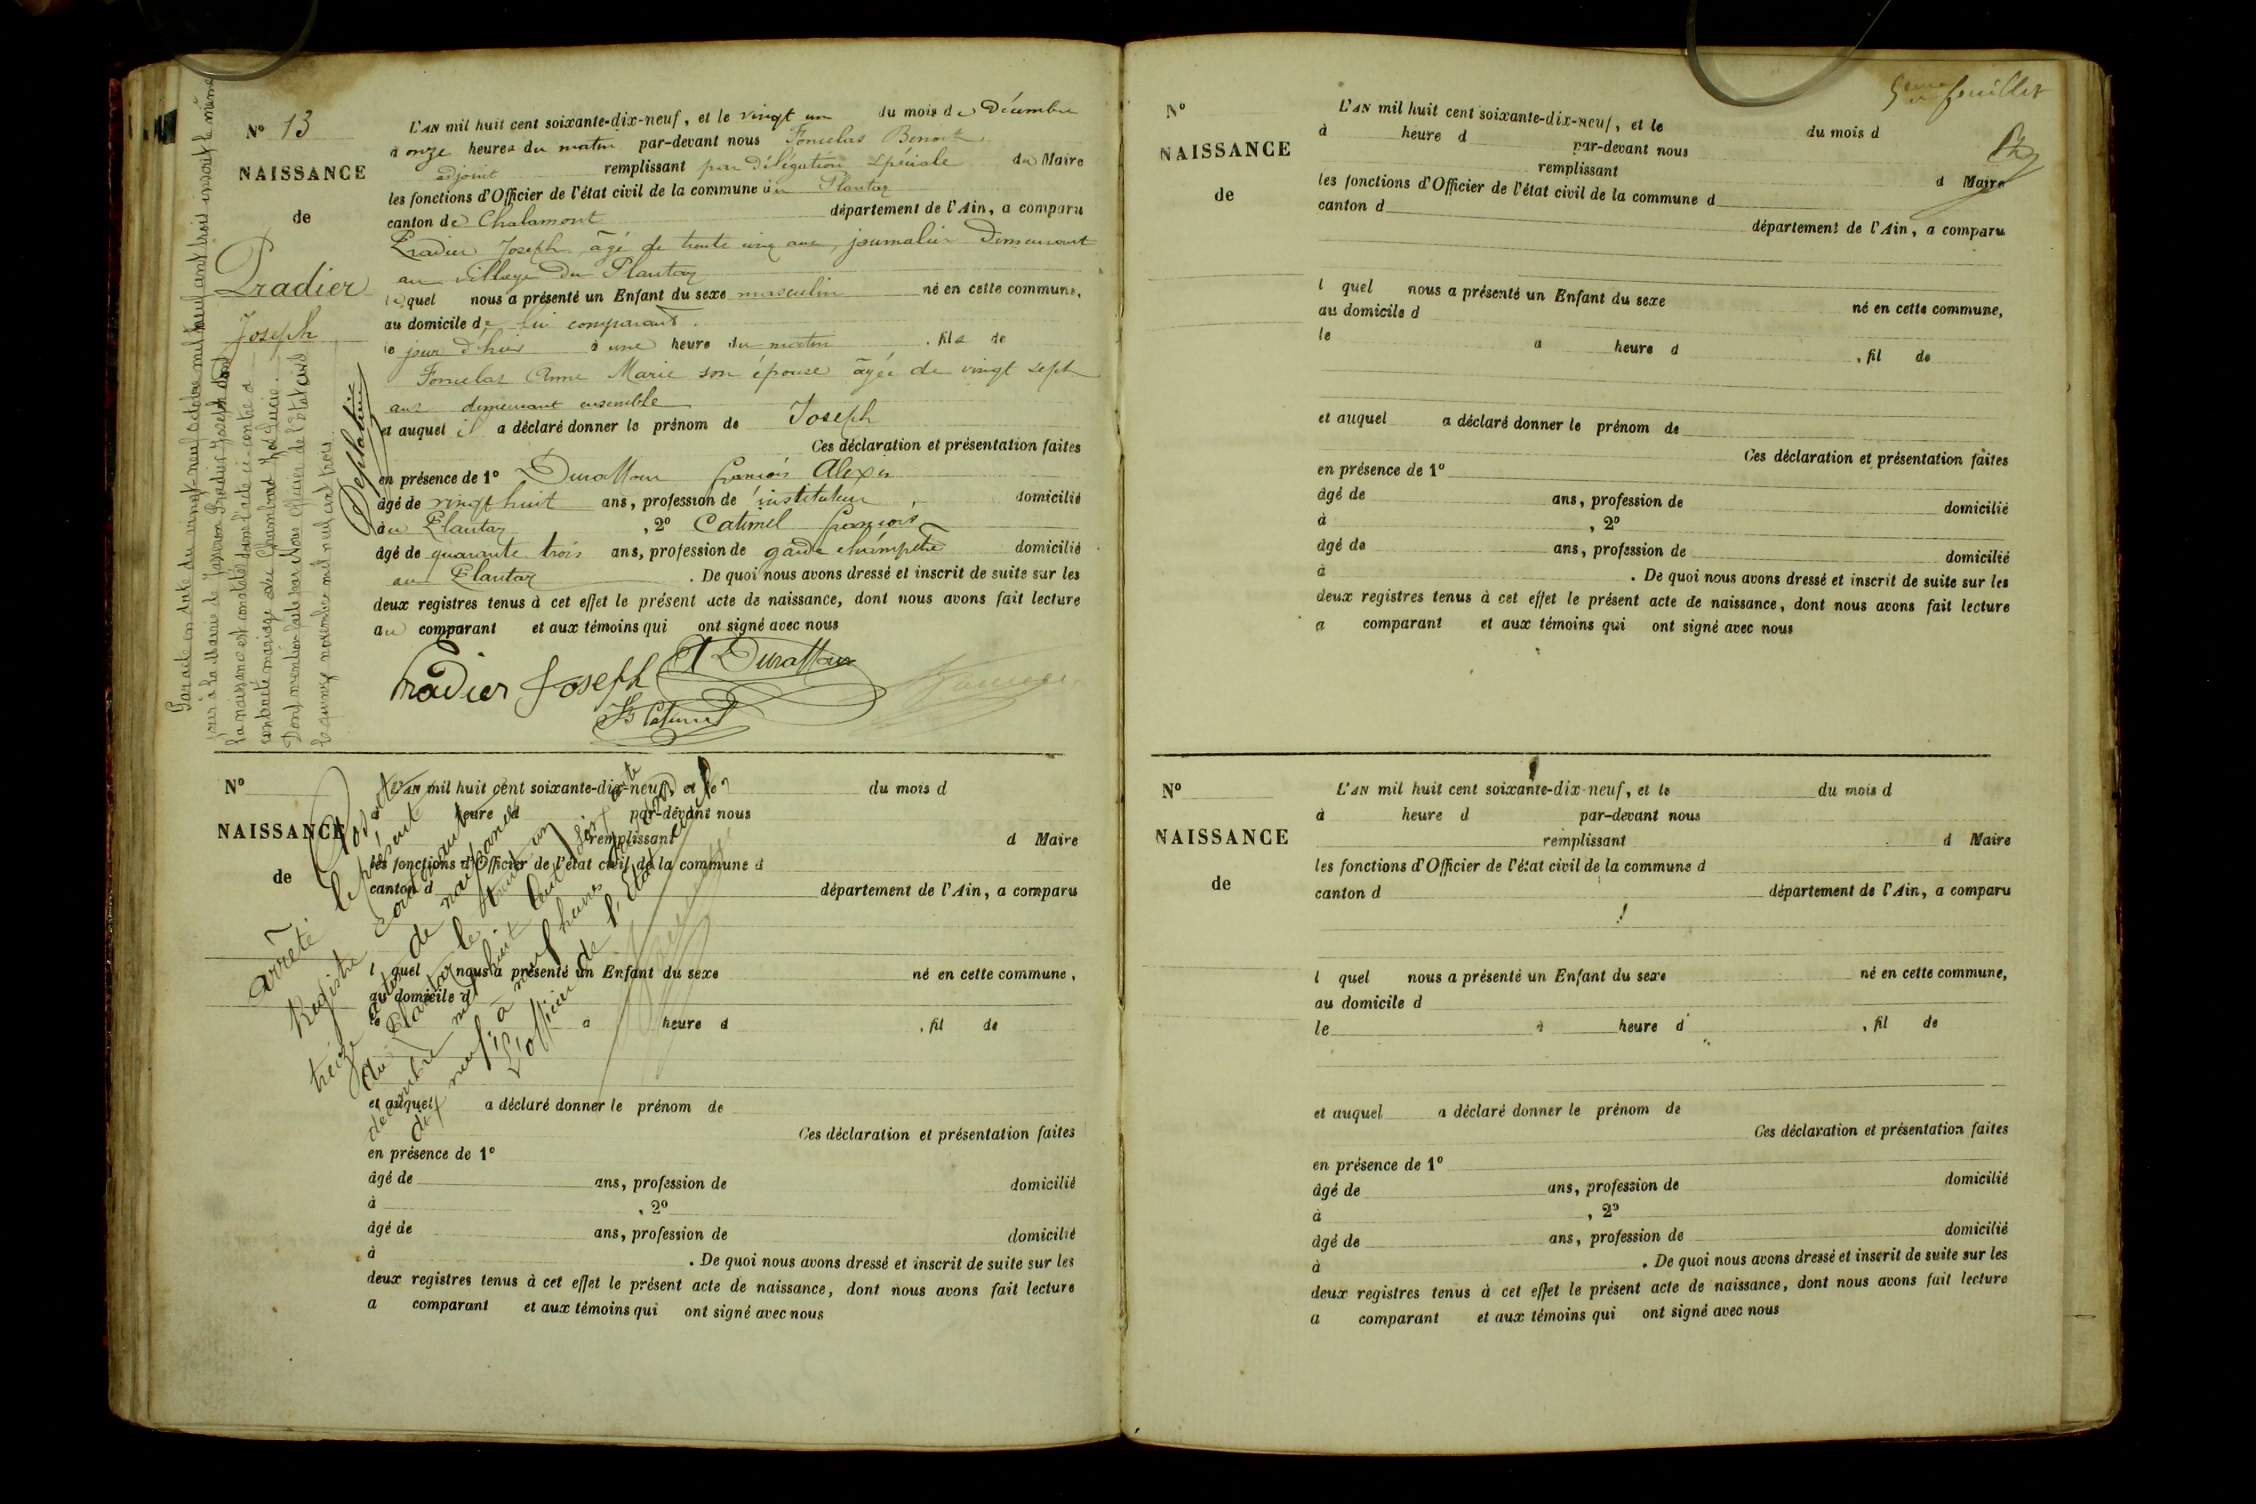 N° 13
NAISSANCE
de
Pradier
Joseph
L'AN mil huit cent soixante-dix-neuf, et le vingt un du mois de Décembre
à onze heures du matin par-devant nous Benoit
adjoint remplissant par délégation spéciale du Maire
les fonctions d'Officier de l'état civil de la commune du Plantay
canton de Chalamont département de l'Ain, a comparu
Pradier Joseph âgé de trente cinq ans, journalier demeurant
au village du Plantay
lequel nous a présenté un Enfant du sexe masculin né en cette commune,
au domicile de lui comparant.
le jour d'hui à une heure du matin, fils de
Anne Marie son épouse âgée de vingt sept
ans demeurant ensemble
et auquel il a déclaré donner le prénom de Joseph
Ces déclaration et présentation faites
en présence de 1° Durattour françois Alexis
âgé de vingt huit ans, profession de instituteur, domicilié
au Plantay, 2° Catimel françois
âgé de quarante trois ans, profession de garde champêtre domicilié
au Plantay. De quoi nous avons dressé et inscrit de suite sur les
deux registres tenus à cet effet le présent acte de naissance, dont nous avons fait lecture
au comparant et aux témoins qui ont signé avec nous
Pradier Joseph A Durattour
Catimel
Par acte en date du vingt-neuf octobre mil neuf cent trois inscrit le même
jour à la Mairie de Pradier Joseph dont
la naissance est constatée dans l'acte ci-contre a
contracté mariage avec
Dont mention faite par Nous Officier de l'état civil
le quinze novembre mil neuf cent trois.
N°
NAISSANCE
de
L'AN mil huit cent soixante-dix-neuf, et le du mois d
heure d par-devant nous
remplissant d Maire
les fonctions d'Officier de l'état civil de la commune d
canton d département de l'Ain, a comparu
l quel nous a présenté un Enfant du sexe né en cette commune,
au domicile d
le à heure d, fil de
et auquel a déclaré donner le prénom de
Ces déclaration et présentation faites
en présence de 1°
âgé de ans, profession de domicilié
à, 2°
âgé de ans, profession de domicilié
à. De quoi nous avons dressé et inscrit de suite sur les
deux registres tenus à cet effet le présent acte de naissance, dont nous avons fait lecture
a comparant et aux témoins qui ont signé avec nous
arrêté le présent
Registre contenant
treize actes de naissance
du Plantay le trente un
décembre mil huit cent soixante
dix neuf à neuf heures
L'officier de l'Etat civil
5eme feuillet
N°
NAISSANCE
de
L'AN mil huit cent soixante-dix-neuf, et le du mois d
à heure d par-devant nous
remplissant d Maire
les fonctions d'Officier de l'état civil de la commune d
canton d département de l'Ain, a comparu
l quel nous a présenté un Enfant du sexe né en cette commune,
au domicile d
le à heure d, fil de
et auquel a déclaré donner le prénom de
Ces déclaration et présentation faites
en présence de 1°
âgé de ans, profession de domicilié
à, 2°
âgé de ans, profession de domicilié
à. De quoi nous avons dressé et inscrit de suite sur les
deux registres tenus à cet effet le présent acte de naissance, dont nous avons fait lecture
a comparant et aux témoins qui ont signé avec nous
N°
NAISSANCE
de
L'AN mil huit cent soixante-dix-neuf, et le du mois d
à heure d par-devant nous
remplissant d Maire
les fonctions d'Officier de l'état civil de la commune d
canton d département de l'Ain, a comparu
l quel nous a présenté un Enfant du sexe né en cette commune,
au domicile d
le à heure d, fil de
et auquel a déclaré donner le prénom de
Ces déclaration et présentation faites
en présence de 1°
âgé de ans, profession de domicilié
à, 2°
âgé de ans, profession de domicilié
à. De quoi nous avons dressé et inscrit de suite sur les
deux registres tenus à cet effet le présent acte de naissance, dont nous avons fait lecture
a comparant et aux témoins qui ont signé avec nous